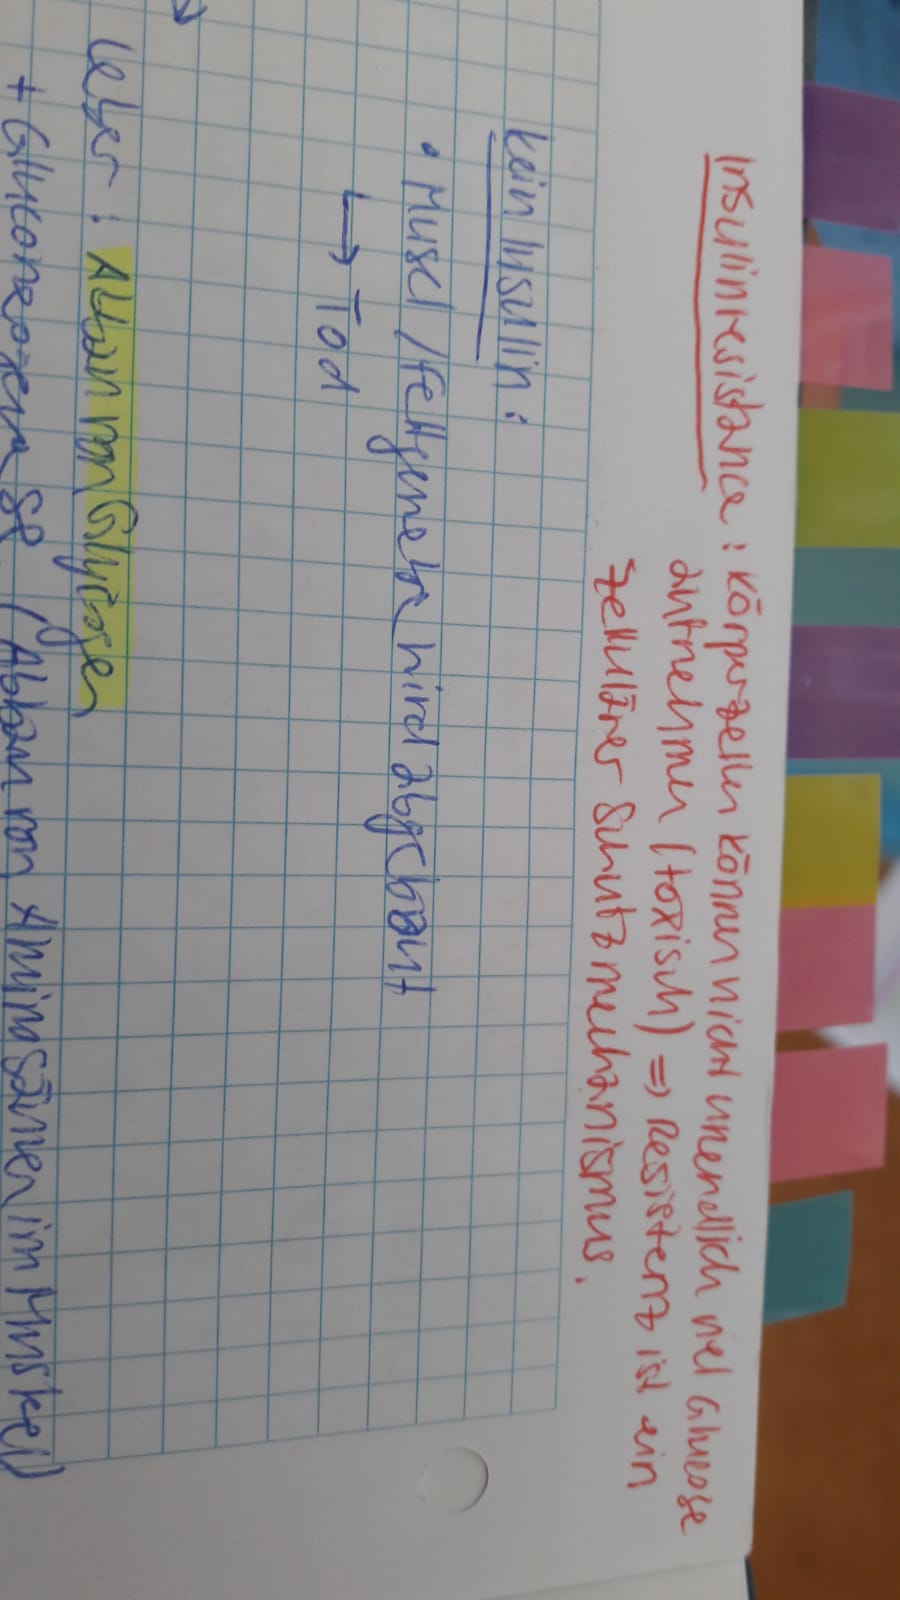 Insulinresistance: Körperzellen können nicht unendlich viel Glucose
aufnehmen (toxisch) => Resistenz ist ein
zellulärer Schutzmechanismus.
kein Insulin:
• Muskel/Fettgewebe wird abgebaut
↳ Tod
Leber: Abbau von Glykogen
+ Gluconeogenese (Abbau von Aminosäuren im Muskel)